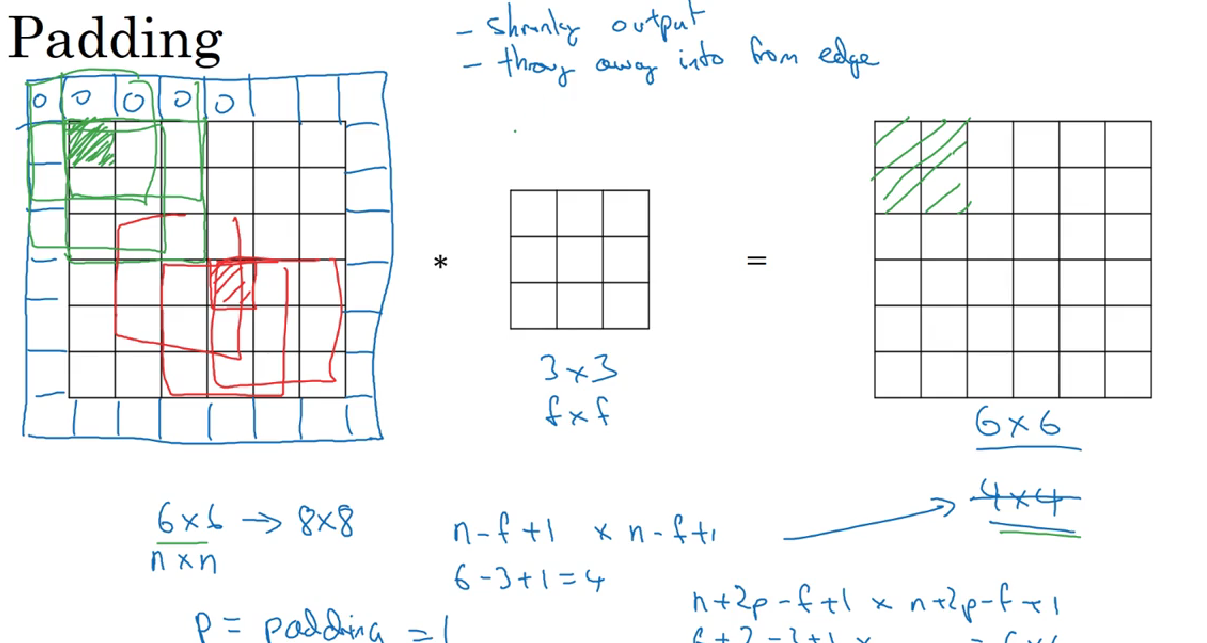 Padding
- shrinky output
- throw away info from edge
0 0 0 0 0
*
=
3 × 3
f × f
6 × 6
4 × 4
6 × 6 → 8 × 8
n × n
n - f + 1 × n - f + 1
6 - 3 + 1 = 4
n + 2p - f + 1 × n + 2p - f + 1
p = padding = 1
6 + 2 - 3 + 1 × = 6 × 6